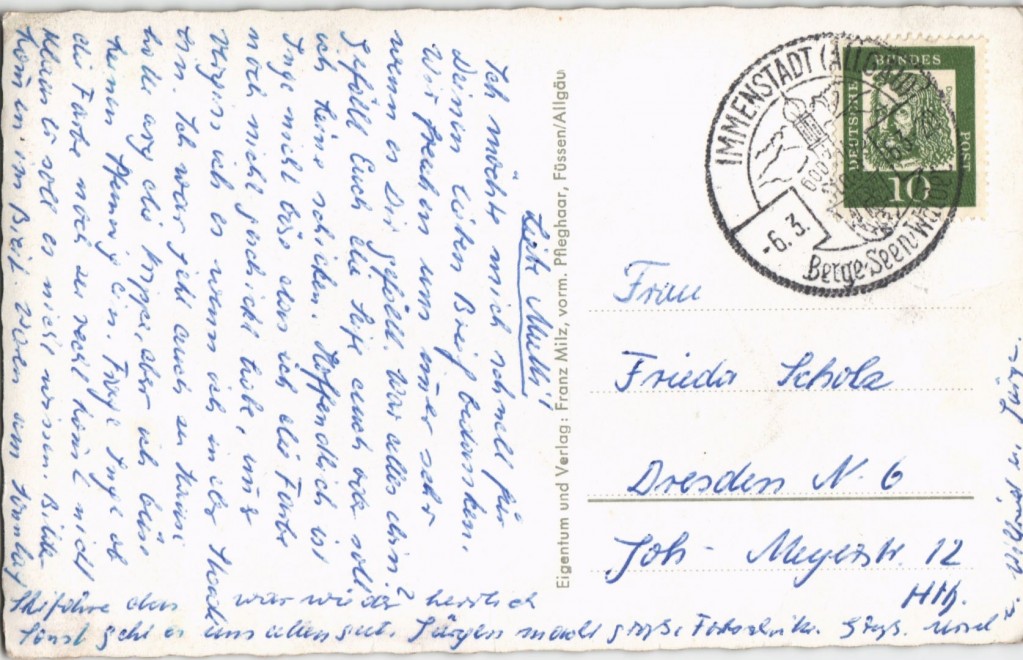 Liebe Mutti,
Ich möchte mich schnell für
Deinen lieben Brief bedanken.
Wir freuen uns immer sehr
wenn es Dir gefällt. War alles drin?
Gefällt Euch die Seife auch oder soll
ich keine schicken. Hoffendlich ist
Inge nicht böse das ich die Farbe
noch nicht geschickt habe, immer
vergess ich es wenn ich in der Stadt
bin. Ich war jetzt auch zu Hause
hatte arg die Grippe, aber ich büse
keinen Pfennig ein. Frag Inge ob
die Farbe noch zu recht kommt nicht
das es soll es nicht wissen. Bilder
kommen im Brief. Waren am Sonntag
Skifahre das war wieder herrlich
Sonst geht es uns allen gut. Jürgen macht große Fortschritte. Grüß. Ursel
u. Wilfried u. Jürge.
Eigentum und Verlag: Franz Milz, vorm. Pfleghaar, Füssen/Allgäu
IMMENSTADT (ALLGÄU)
-6.3.
Berge-Seen-Wälder
DEUTSCHE
BUNDES
POST
10
Frau
Frieda Scholz
Dresden N. 6
Joh- Meyerstr. 12
HH.